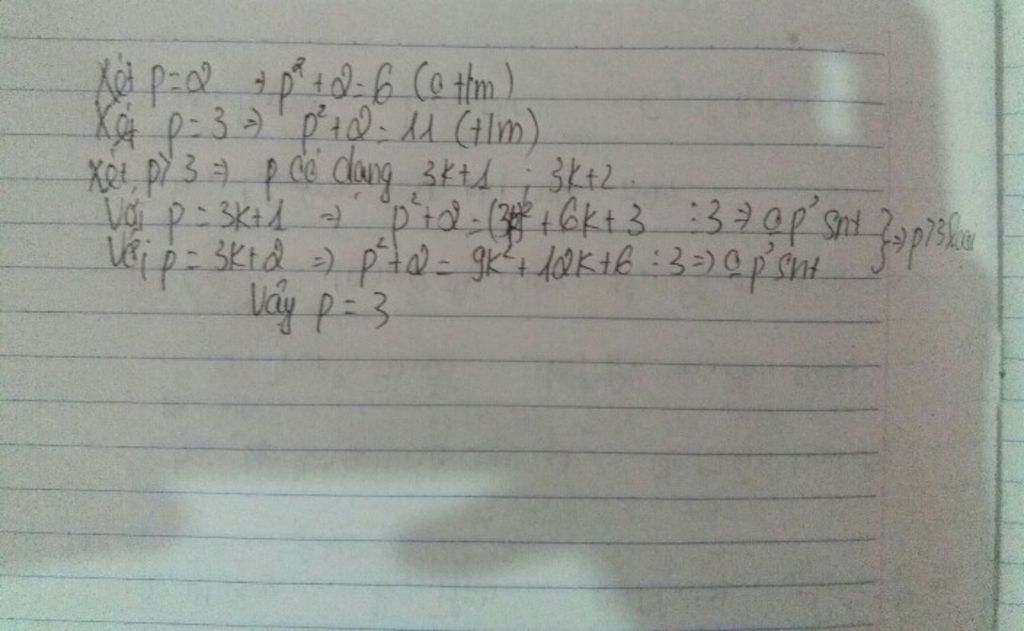 Xét p = 2 → p² + 2 = 6 (o t/m)
Xét p = 3 ⇒ p² + 2 = 11 (t/m)
Xét p > 3 ⇒ p có dạng 3k+1 ; 3k+2
Với p = 3k+1 ⇒ p² + 2 = + 6k + 3 ⋮ 3 ⇒ o p' snt } ⇒ p > 3
Với p = 3k+2 ⇒ p² + 2 = 9k² + 12k + 6 ⋮ 3 ⇒ o p' snt
Vậy p = 3